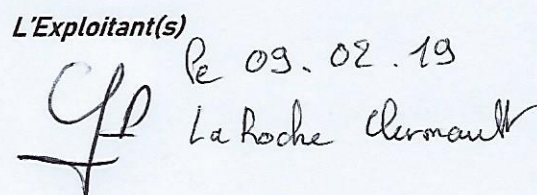 L'Exploitant(s)
le 09.02.19
La Roche Clermault